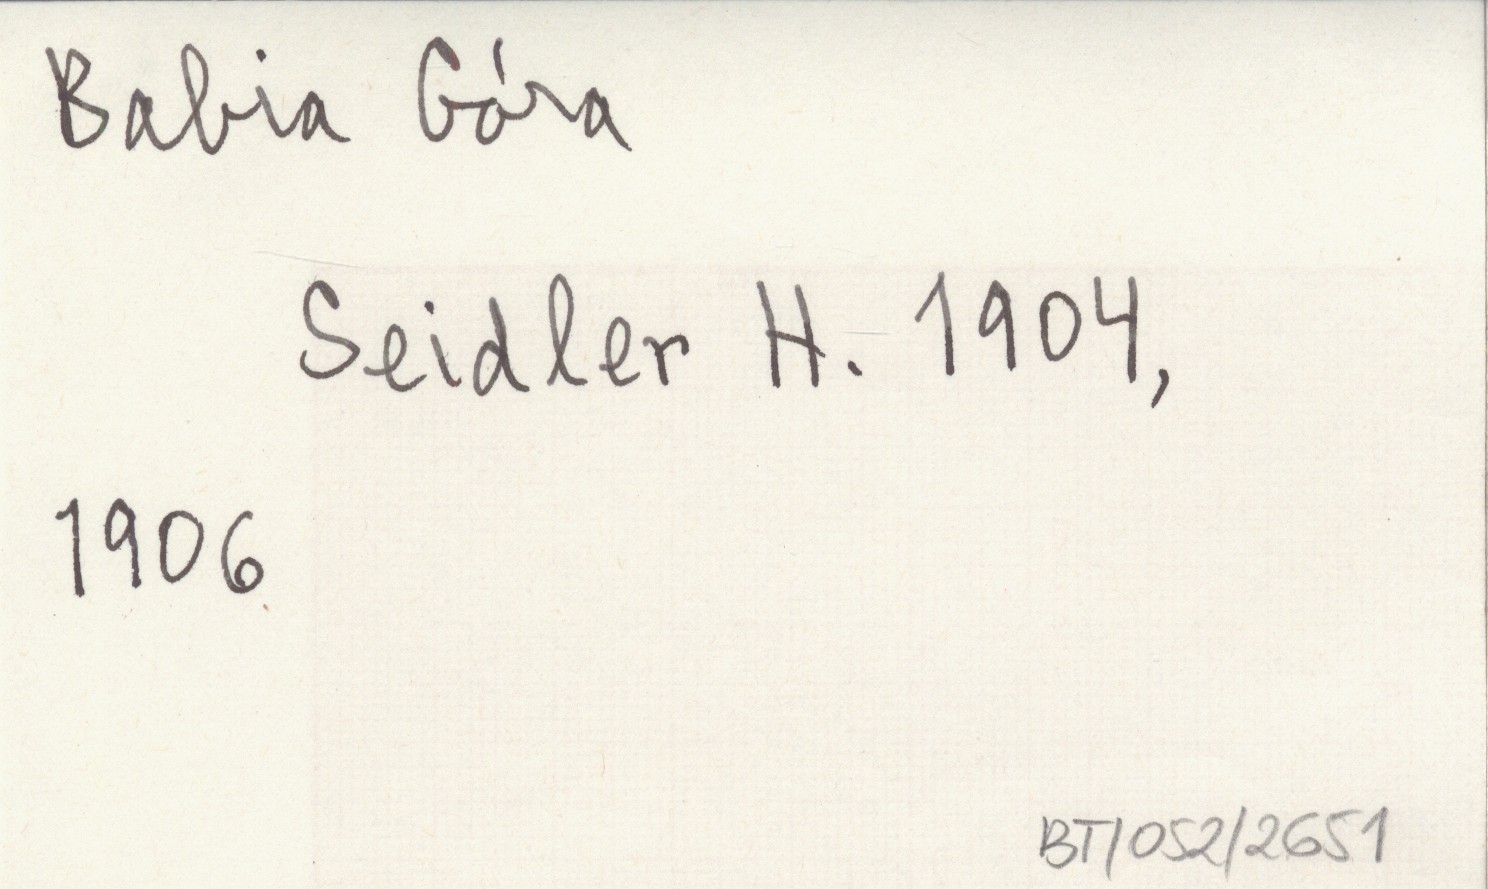 Babia Góra
Seidler H. 1904,
1906
BT/052/2651